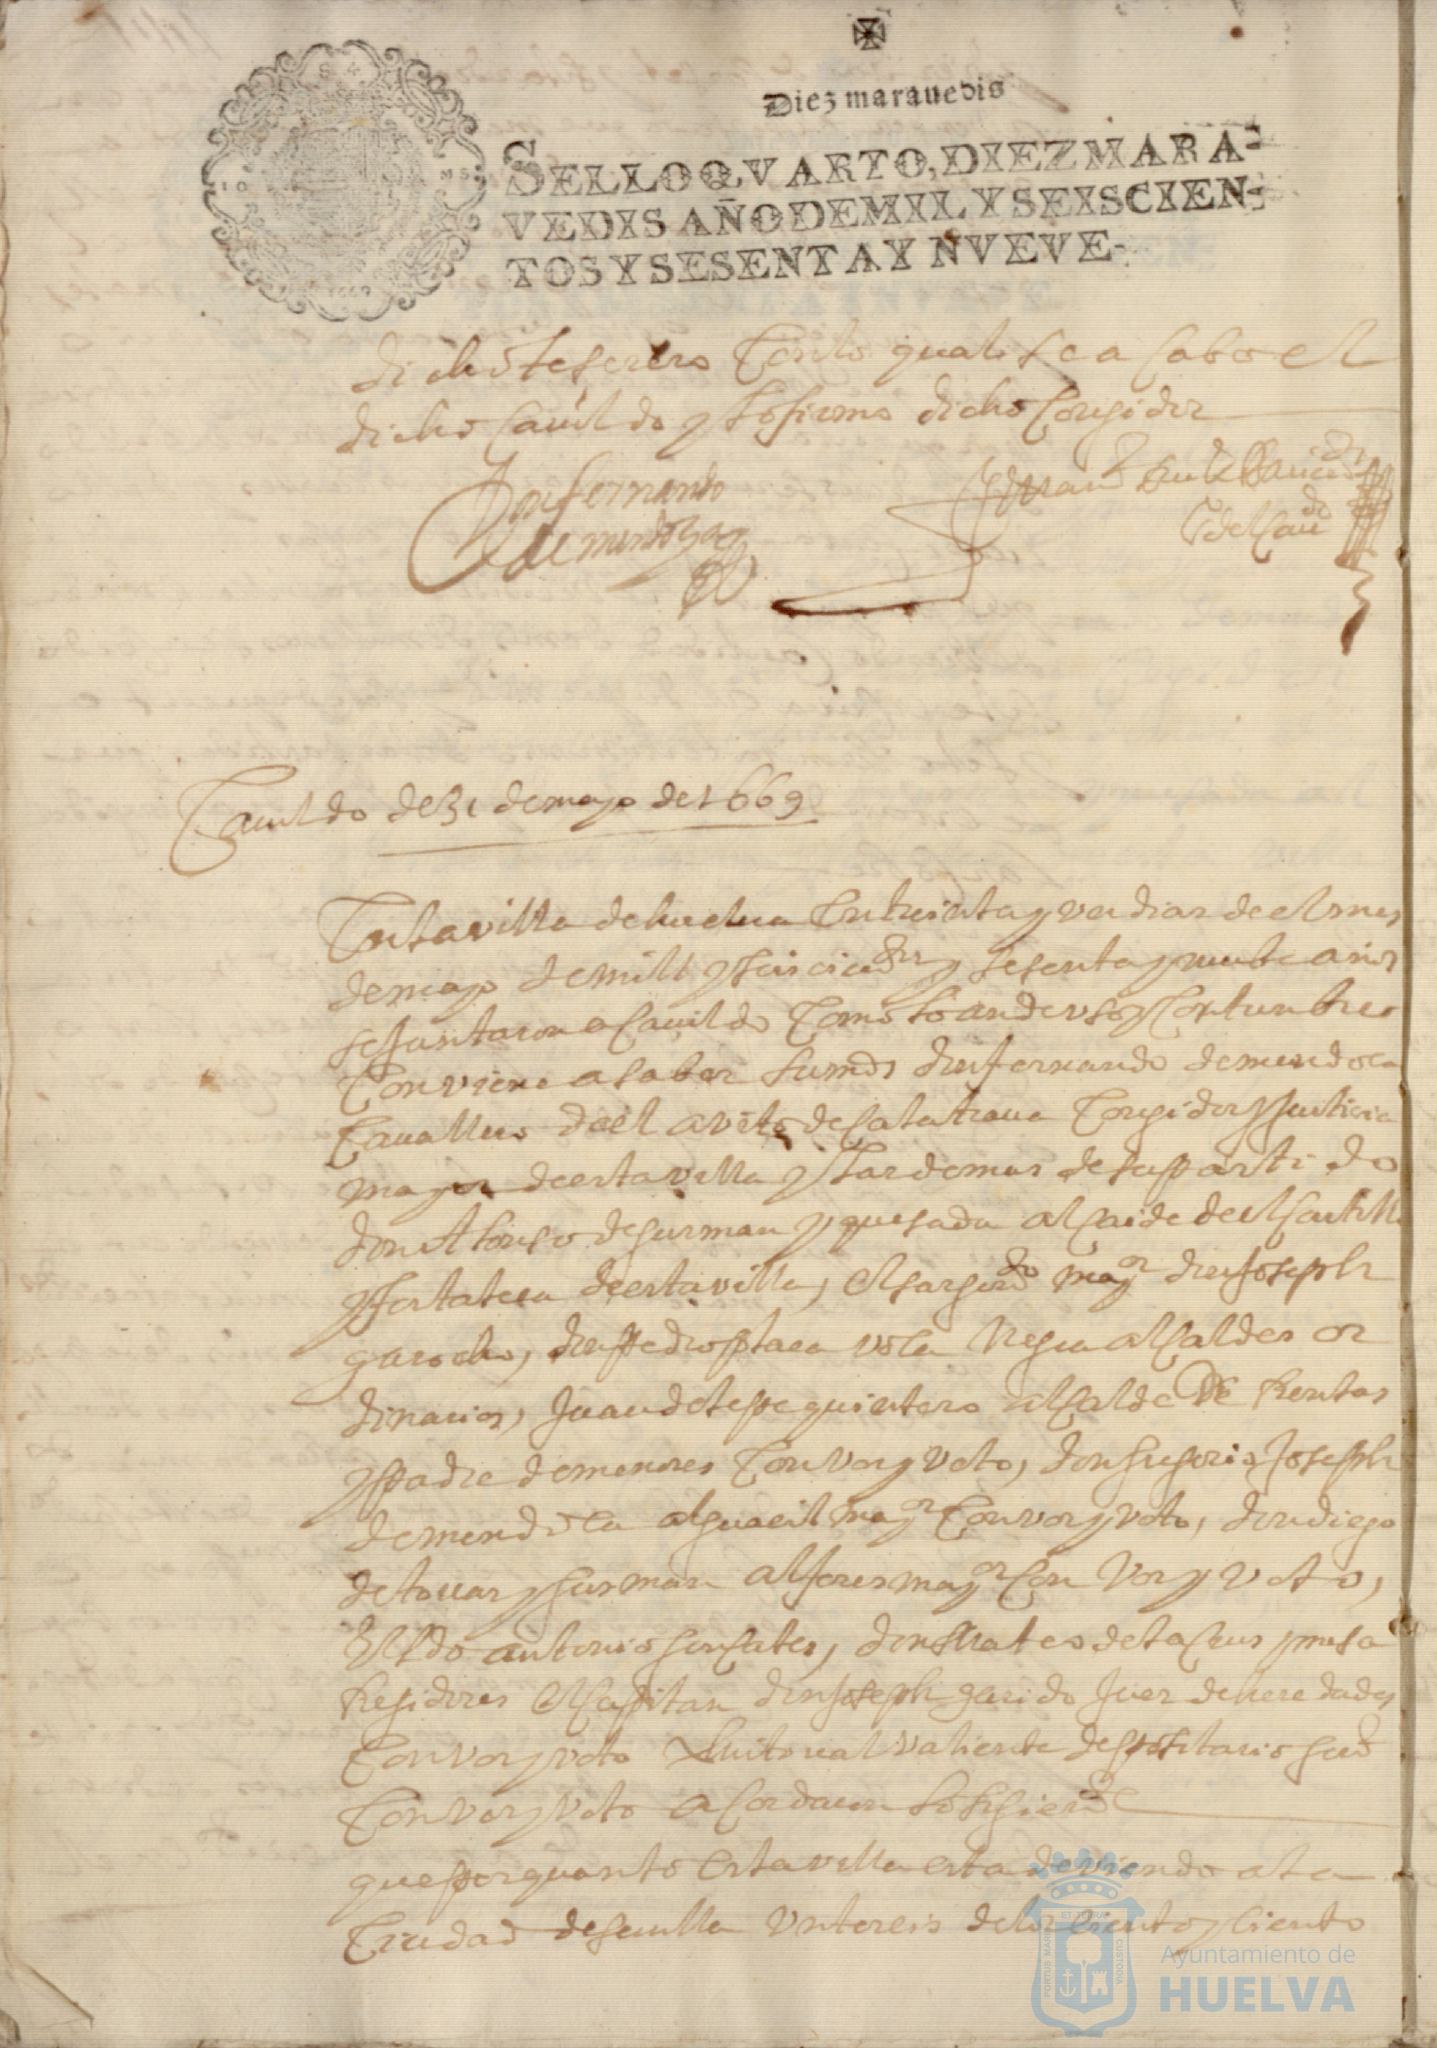 Diez marauedis
SELLO QVARTO, DIEZ MARA-
VEDIS AÑO DE MIL Y SEISCIEN-
TOS Y SESENTA Y NVEVE-
dicho tesorero Con lo qual se acabo el
dicho Cauildo y lo firmo dicho Corregidor
Don fernando
de mendoza
del Cau
Cauildo de 31 de mayo de 1669
En la villa de huelua En treinta y un dias de el mes
de mayo de mill y seiscientos y sesenta y nuebe años
se Juntaron a Cauildo Como lo an de uso y Costumbre
Conviene a saber su md don fernando de mendoca
Cauallero de el avito de Calatraua Corregidor y Justicia
mayor de esta villa y las demas de su partido
don Alonso de gusman y quesada alcaide de el Castillo
y fortaleca de esta villa, el sargento mayor don Joseph
garocho, don pedro placa alcaldes or
dinarios, Juan de lepe quintero alcalde de Rentas
y padre de menores Con vos y voto, don gregorio Joseph
de mendoca alguacil mayor Con vos y voto, don diego
de touar y gusman alferes mayor Con vos y voto,
El ldo antonio gonsales, don Mateo de la y mesa
Regidores el Capitan don Joseph garrido Jues de heredades
Con vos y voto Xpstoual valiente depositario genl
Con vos y voto acordaron lo siguiente
que por quanto esta villa esta deviendo a la
Ciudad de seuilla de los ciento y ciento
PORTUS MARIS ET TERRAE CUSTODIA
Ayuntamiento de
HUELVA